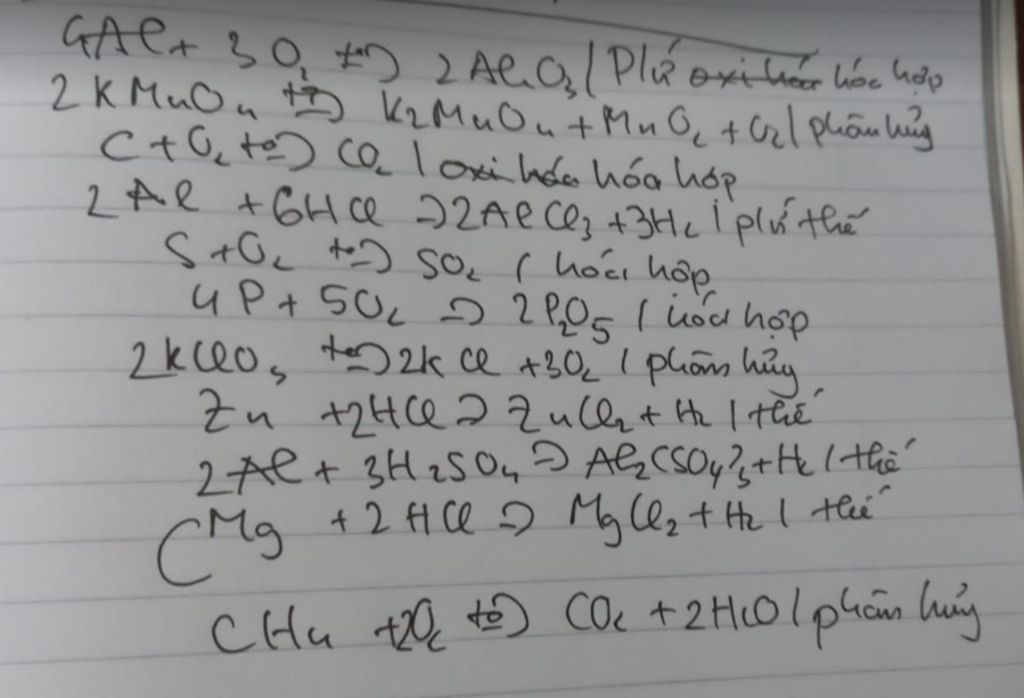 4Al + 3O₂ t°=> 2Al₂O₃ / Pứ hóa hợp
2KMnO₄ t°=> K₂MnO₄ + MnO₂ + O₂ / phân hủy
C + O₂ t°=> CO₂ / hóa hợp
2Al + 6HCl => 2AlCl₃ + 3H₂ / pứ thế
S + O₂ t°=> SO₂ / hóa hợp
4P + 5O₂ => 2P₂O₅ / hóa hợp
2KClO₃ t°=> 2KCl + 3O₂ / phân hủy
Zn + 2HCl => ZnCl₂ + H₂ / thế
2Al + 3H₂SO₄ => Al₂(SO₄)₃ + H₂ / thế
Mg + 2HCl => MgCl₂ + H₂ / thế
CH₄ + 2O₂ t°=> CO₂ + 2H₂O / phân hủy